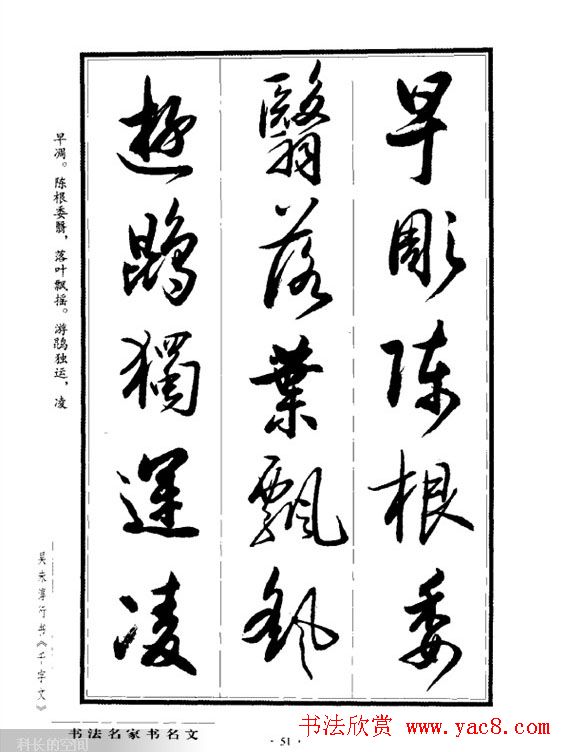 早彫陳根委
翳落葉飄飖
遊鵾獨運凌
早凋。陈根委翳，落叶飘摇。游鹍独运，凌
吴未淳行书《千字文》
书法名家书名文
· 51 ·
书法欣赏 www.yac8.com
科长的空间